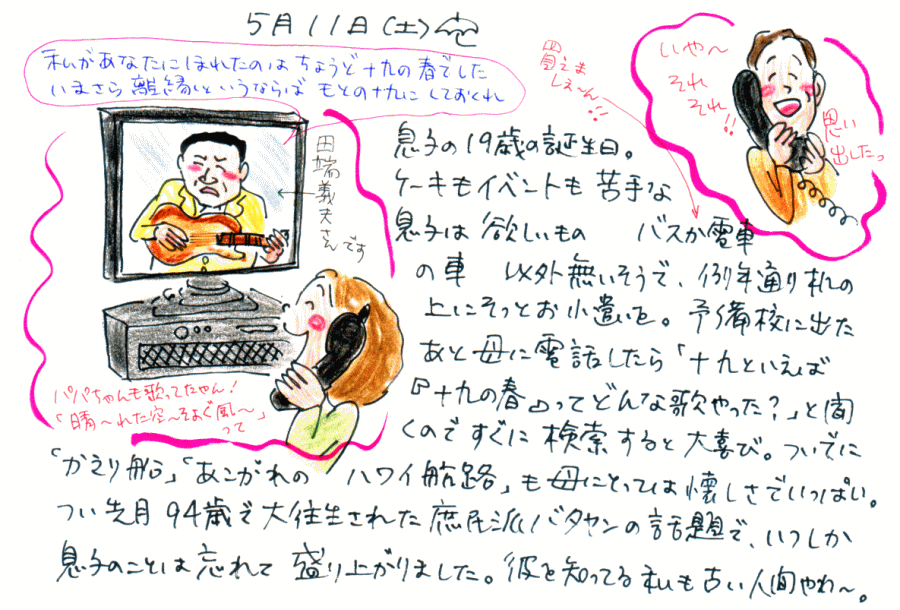 5月11日(土)
私があなたにほれたのは ちょうど十九の春でした
いまさら離縁というならば もとの十九にしておくれ
田端義夫さんです
パパちゃんも歌ってたやん!
「晴〜れた空〜そよぐ風〜」
って
買えま
しぇ〜ん!!
いや〜
それ
それ!!
思い
出したっ
息子の19歳の誕生日。
ケーキもイベントも苦手な
息子は欲しいもの バスか電車
の車 以外無いそうで、例年通り机の
上にそっとお小遣いを。予備校に出た
あと母に電話したら「十九といえば
『十九の春』ってどんな歌やった?」と聞
くのですぐに検索すると大喜び。ついでに
「かえり船」「あこがれの ハワイ航路」も母にとっては懐しさでいっぱい。
つい先月94歳で大往生された庶民派バタヤンの話題で、いつしか
息子のことは忘れて盛り上がりました。彼を知ってる私も古い人間やわ〜。